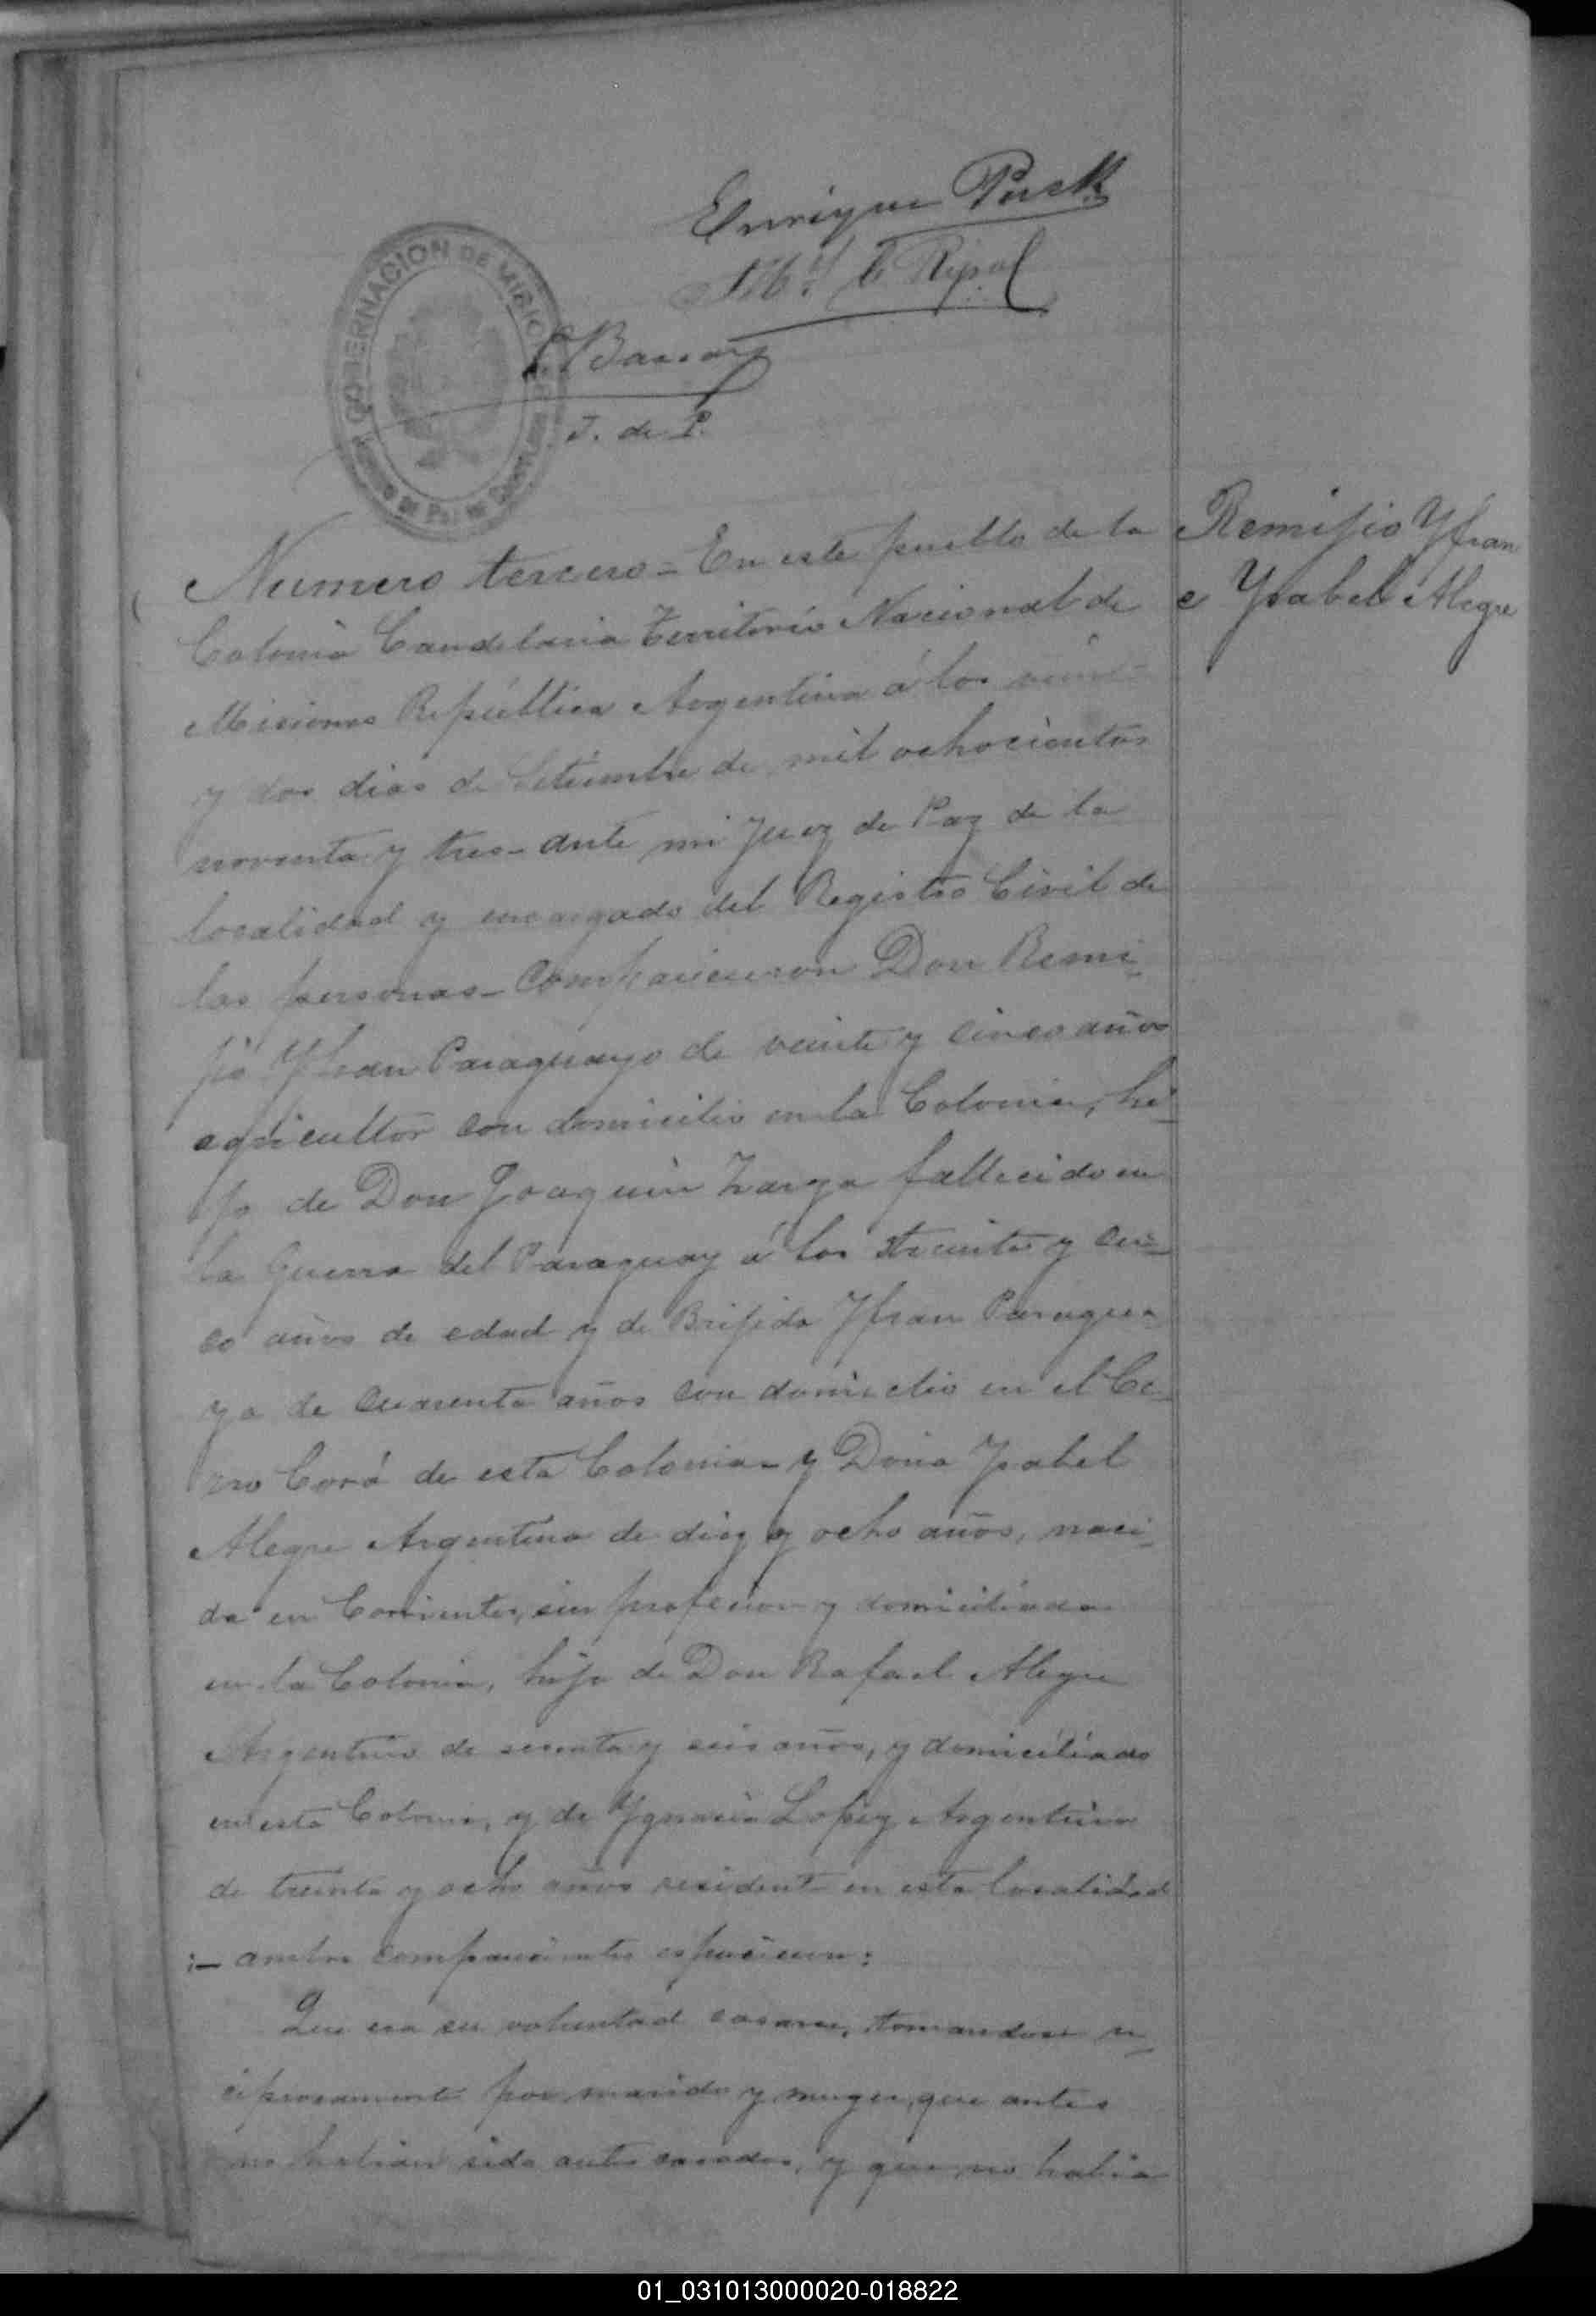 Enrique Puck
Ripol
J. de P.
GOBERNACION DE MISIO
Numero tercero = En este pueblo de la
Remijio Yfran
e Ysabel Alegre
Colonia Candelaria Territorio Nacional de
Misiones República Argentina á los veinte
y dos dias de Setiembre de mil ochocientos
noventa y tres - ante mi Juez de Paz de la
localidad y encargado del Registro Civil de
las personas - Comparecieron Don Remi-
jio Yfran Paraguayo de veinte y cinco años
agricultor con domicilio en la Colonia, hi-
jo de Don Joaquin fallecido en
la Guerra del Paraguay á los treinta y cin-
co años de edad y de Brijida Yfran Paragua-
ya de cuarenta años con domicilio en el Ce-
rro Corá de esta Colonia - y Doña Ysabel
Alegre Argentina de diez y ocho años, naci-
da en Corrientes, sin profesion y domiciliada
en la Colonia, hija de Don Rafael Alegre
Argentino de y seis años, y domiciliado
en esta Colonia, y de Ygnacia Lopez Argentina
de treinta y ocho años residente en esta localidad
:- ambos comparecientes espusieron:
Que era su voluntad casarse, tomandose re-
ciprocamente por marido y muger, que antes
no habian sido antes casados, y que no habia
01_031013000020-018822